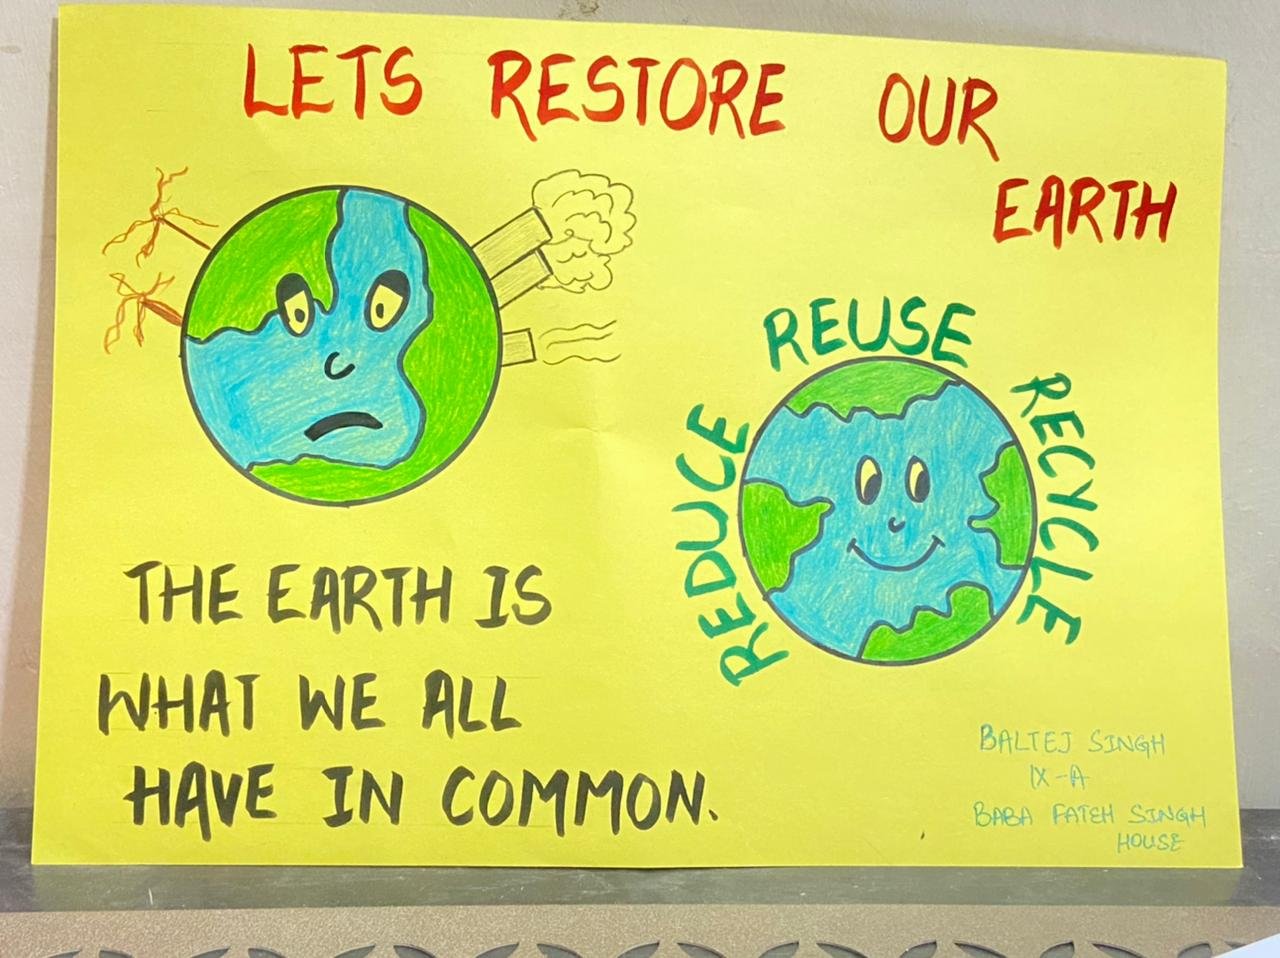 LETS RESTORE OUR
EARTH
REDUCE
REUSE
RECYCLE
THE EARTH IS
WHAT WE ALL
HAVE IN COMMON.
BALTEJ SINGH
IX-A
BABA FATEH SINGH
HOUSE